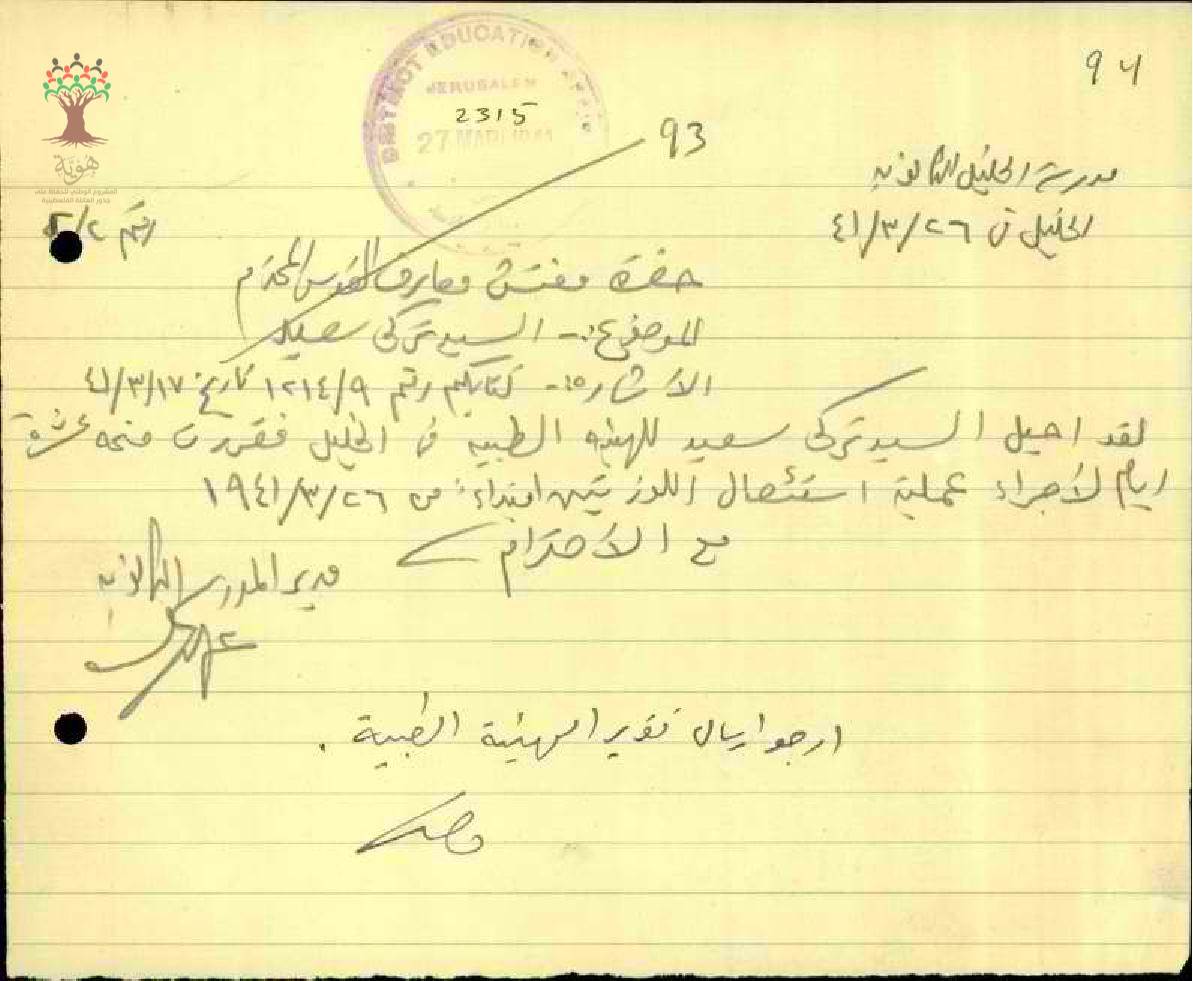 94
DISTRICT EDUCATION OFFICE
JERUSALEM
2315
27 MAR 1941
93
هُوِيَّة
المشروع الوطني للحفاظ على
جذور العائلة الفلسطينية
مدرسة الخليل الثانوية
الخليل في ٢٦/٣/٤١
رقم ٢/
حضرة مفتش معارف القدس المحترم
الموضوع :- السيد تركي سعيد
الاشارة :- كتابكم رقم ١٢١٤/٩ تاريخ ٤١/٣/١٧
لقد احيل السيد تركي سعيد للهيئة الطبية في الخليل فقررت منحه عشرة
ايام لأجراء عملية استئصال اللوزتين ابتداءً من ١٩٤١/٣/٢٦
مع الأحترام
مدير المدرسة الثانوية
ارجو ارسال تقرير الهيئة الطبية .